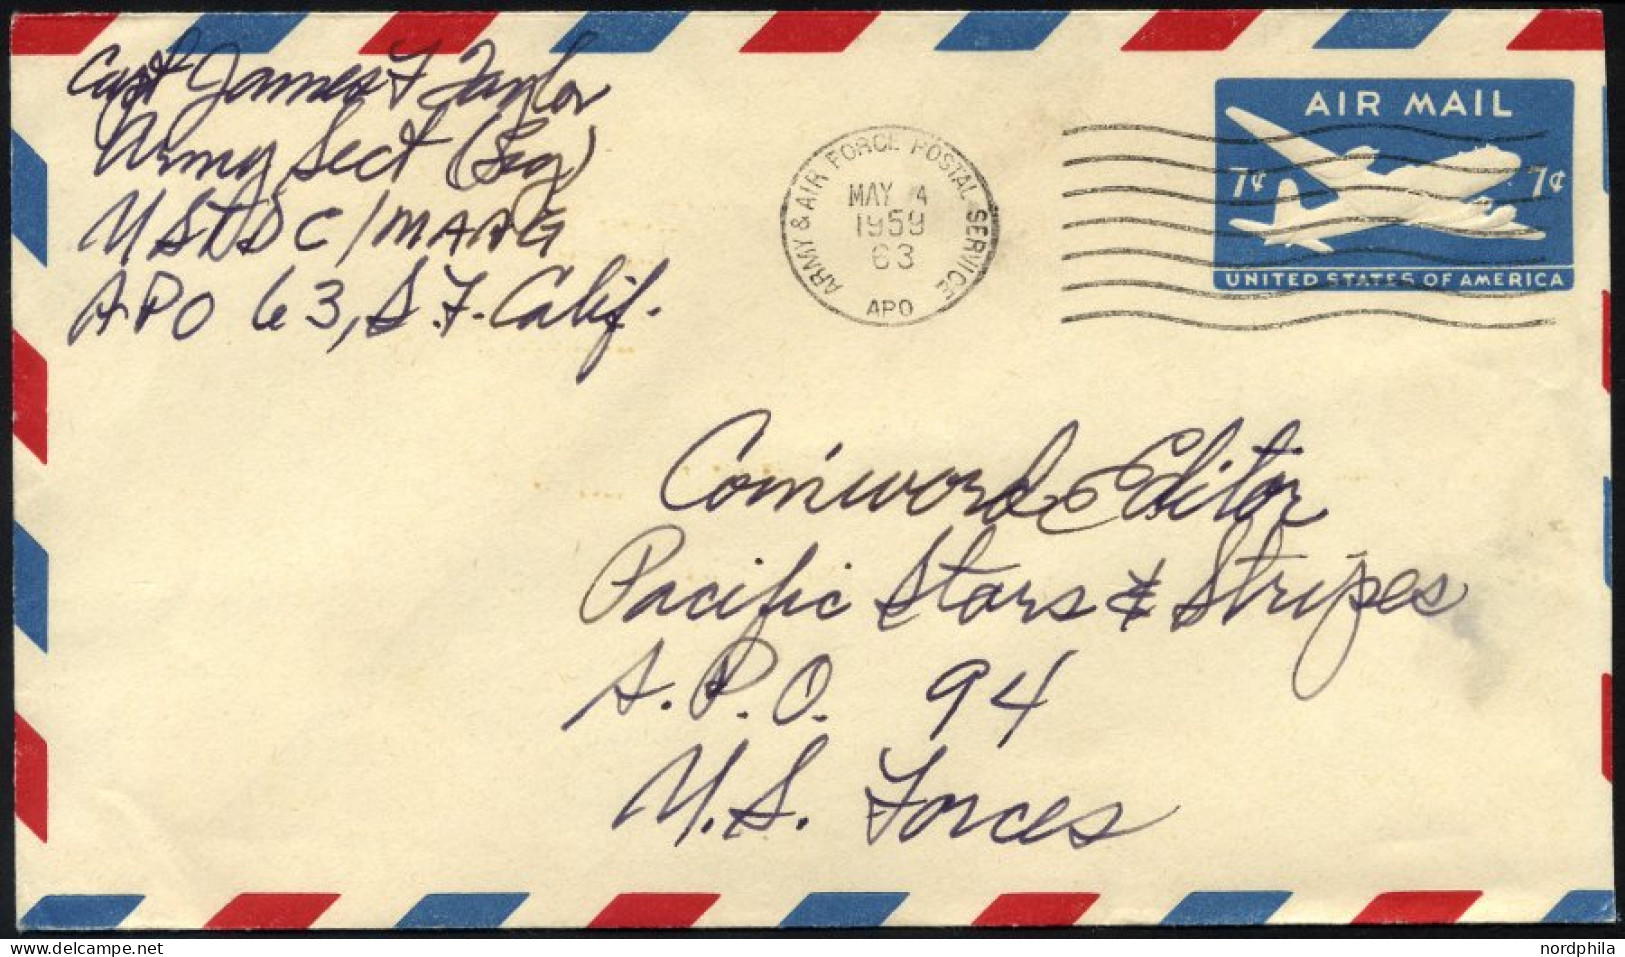 Capt James F Taylor
Army Sect (Seq)
USTDC/MAAG
APO 63, S.F. Calif.
ARMY & AIR FORCE POSTAL SERVICE
MAY 4
1959
63
APO
AIR MAIL
7¢ 7¢
UNITED STATES OF AMERICA
Coinword Editor
Pacific Stars & Stripes
A.P.O. 94
U.S. Forces
www.delcampe.net
nordphila